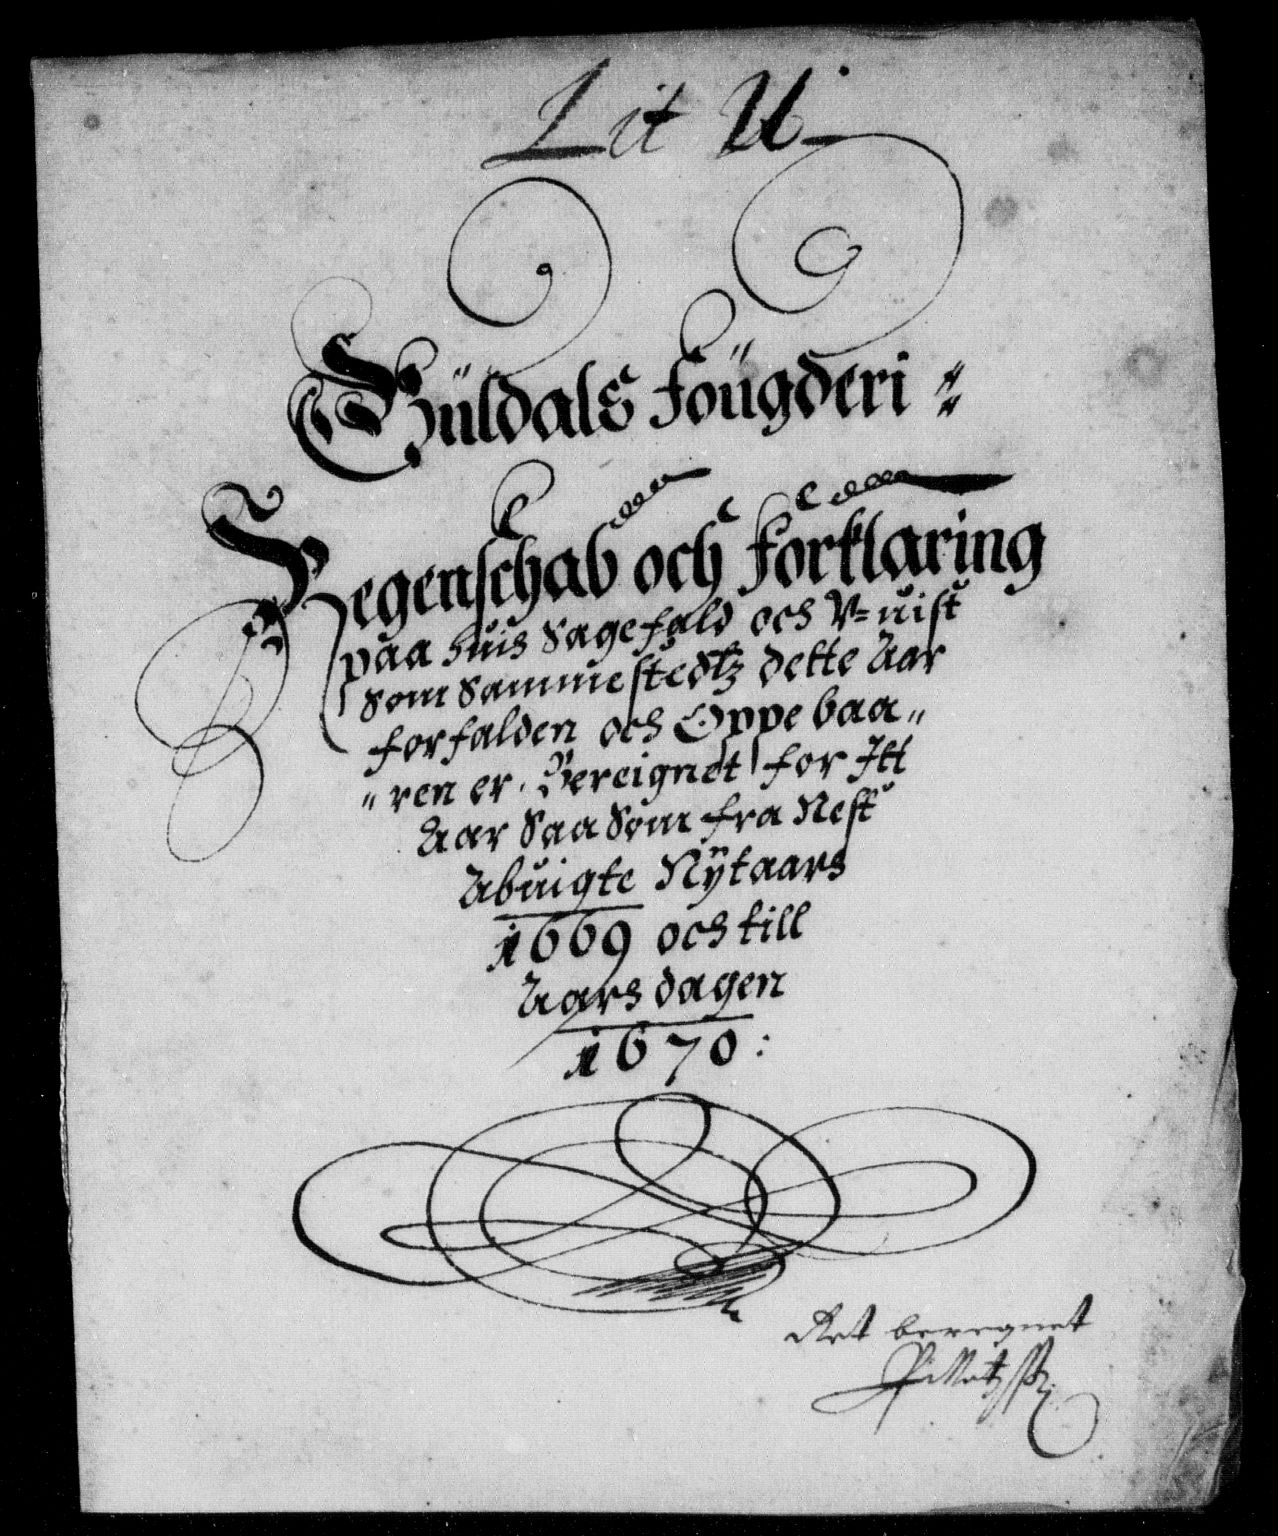 Lit U.
Güldals fougderi
Regenschab och Forklaring
paa huis Sagefald och V=uist
som Sammestedtz dette Aar
forfalden och Oppebaa„
„ren er. Bereignet for Itt
Aar Saa Som fra Nest
Abuigte Nÿtaars
1669 och till
Aars dagen
1670:
Ret beregnet